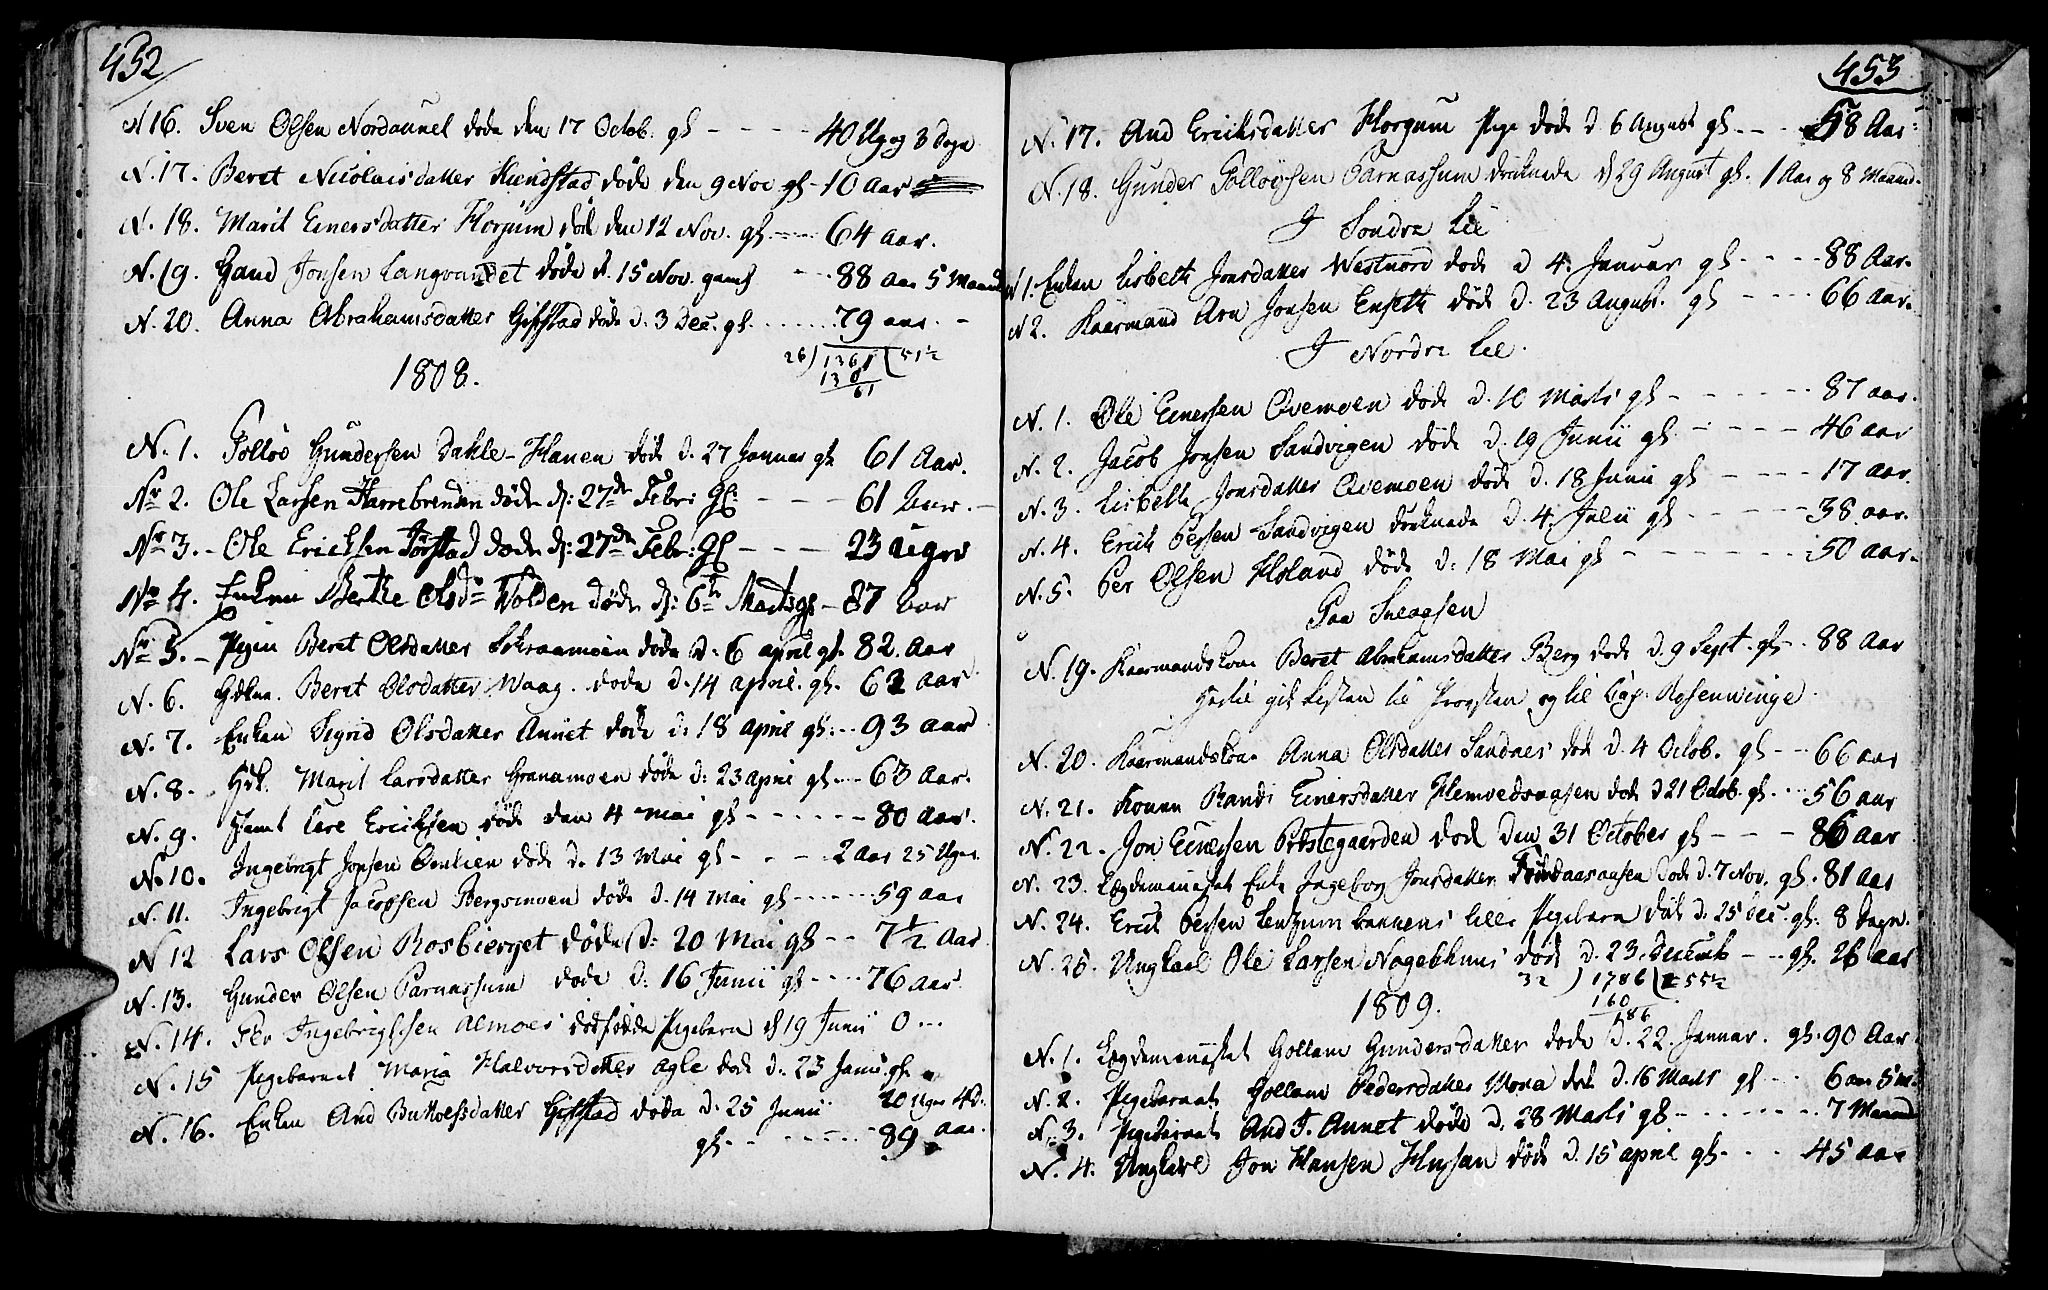 452
N 16. Sven Olsen Nordaunet døde den 17 Octob. gl - - - - 40 Ug og 3 Dage
N. 17. Beret Nicolaisdatter Kundstad døde den 9 Nov gl - 10 Aar
N. 18. Marit Einersdatter Florjum død den 12 Nov. gl. - - - 64 Aar.
N. 19. Gaud Jonsen Langvandet døde d. 15 Nov. gaml - - - 88 aar 5 Maand
N. 20. Anna Abrahamsdatter Gifstad døde d. 3 Dec. gl. . . . . . . . 79 aar. -
26) 1361 ( 51½
130
61
1808.
N. 1. Tolløv Gundersen Dahle-Hanen død d. 27 Januar gl 61 Aar.
No 2. Ole Larsen Harrebrenden døde d: 27de Febr: gl: - - - 61 Aar. -
No 3. - Ole Erichsen Jørstad døde d: 27de Febr: gl - - - 23 Uger
No 4. Enken Berthe Olsdr Volden døde d: 6te Marts gl - 87 Aar
No 5. - Pigen Beret Olsdatter døde d: 6 april gl. 82. Aar
N. 6. Beret Olsdatter Waag. døde d. 14 april. gl. 62 aar
N. 7. Enken Sigrid Olsdatter Aunet døde d: 18 april gl: - - 93 aar
N. 8. Hdk. Marit Larsdatter Granamoen døde d: 23 april gl - - 63 Aar.
N. 9. Iver Erichsen død den 4 mai gl - - - - - - 80 Aar.
N. 10. Ingebrigt Jonsen døde d. 13 Mai gl - - - - 2 Aar 25 Uger.
N. 11. Ingebrigt Jacobsen Bergsmoen døde d. 14 Mai gl - - - - - - 59 aar
N 12 Lars Olsen Rosbierget døde d: 20 Mai gl - - 7½ Aar
N. 13. Gunder Olsen Parnassum døde d: 16 Junii gl - - - - 76 aar.
N. 14. Ingebrigtsen Almoes dødfødde Pigebarn d 19 Junii 0 - - -
N. 15 Pigebarnet Maria Halvorsdatter Agle døde d. 23 Junii gl.
20 Uger 4 D.
N. 16. Enken And Gifstad døde d. 25 Junii
gl - - - - - - - 89 aar.
453
N. 17. And Erichsdatter Florgum Pige døde d. 6 August gl. - - - 58 Aar
N. 18. Gunder Tolløvsen Parnassum druknede d 29 August gl. 1 Aar og 8 Maand.
I Søndre Lie
N 1. Enken Lisbeth Jonsdatter Westnord døde d 4. Januar gl - - - - 88 Aar.
N 2. Kaarmand Arn Jonsen Enseth døde d. 23 August. gl - - - - 66 Aar.
I Nordre Lie.
N. 1. Ole Einersen Qvemoen døde d. 10 Marts gl - - - - - - 87 aar.
N. 2. Jacob Jonsen Sandvigen døde d. 19 Junii gl. - - - - - 46 aar
N. 3. Lisbeth Jonsdatter Qvemoen døde d. 18 Junii gl - - - - 17 aar.
N. 4. Erich Persen Sandvigen druknede d. 4. Julii gl - - - - - 38 aar.
N. 5. Per Olsen Holand døde d: 18 Mai gl - - - - - - - 50 Aar.
Paa Snaasen
N. 19. Kaarmandskone Beret Abrahamsdatter Berg døde d. 9 Sept. gl - - 88 Aar
Hertil gik Listen til Provsten og til Cap. Rosenwinge.
N. 20. Kaarmandskone Anna Olsdatter Sandnes død d. 4 Octob. gl - - - 66 aar
N. 21. Konen Randi Einersdatter død d 21 Octob. gl. - - - 56 aar
N. 22. Jon Einersen Præstegaarden død den 31 October gl - - - 86 Aar
N. 23. Lægdemennesket Enke Ingeborg Jonsdatter døde d. 7 Nov. gl. 81 aar
N. 24. Erich Persen lille Pigebarn døde d. 25 Dec. gl. 8 Dage.
N. 25. Ungkarl Ole Larsen død d. 23. Decemb - - gl. 26 aar
32 ) 1786 ( 55½
160
186
1809.
N. 1. Lægdemennesket Gollaug Gundersdatter døde d. 22. Januar. gl. 90 Aar
N. 2. Pigebarnet Gollaug Pedersdatter Mona død d. 16 Marts gl - - - 6 aar 5 M.
N. 3. Pigebarnet And J. Aunet døde d. 28 Marts gl. - - - - - - - 7 Maand
N. 4. Ungkarl Jon Hansen døde d. 15 april gl - - - - 45 aar